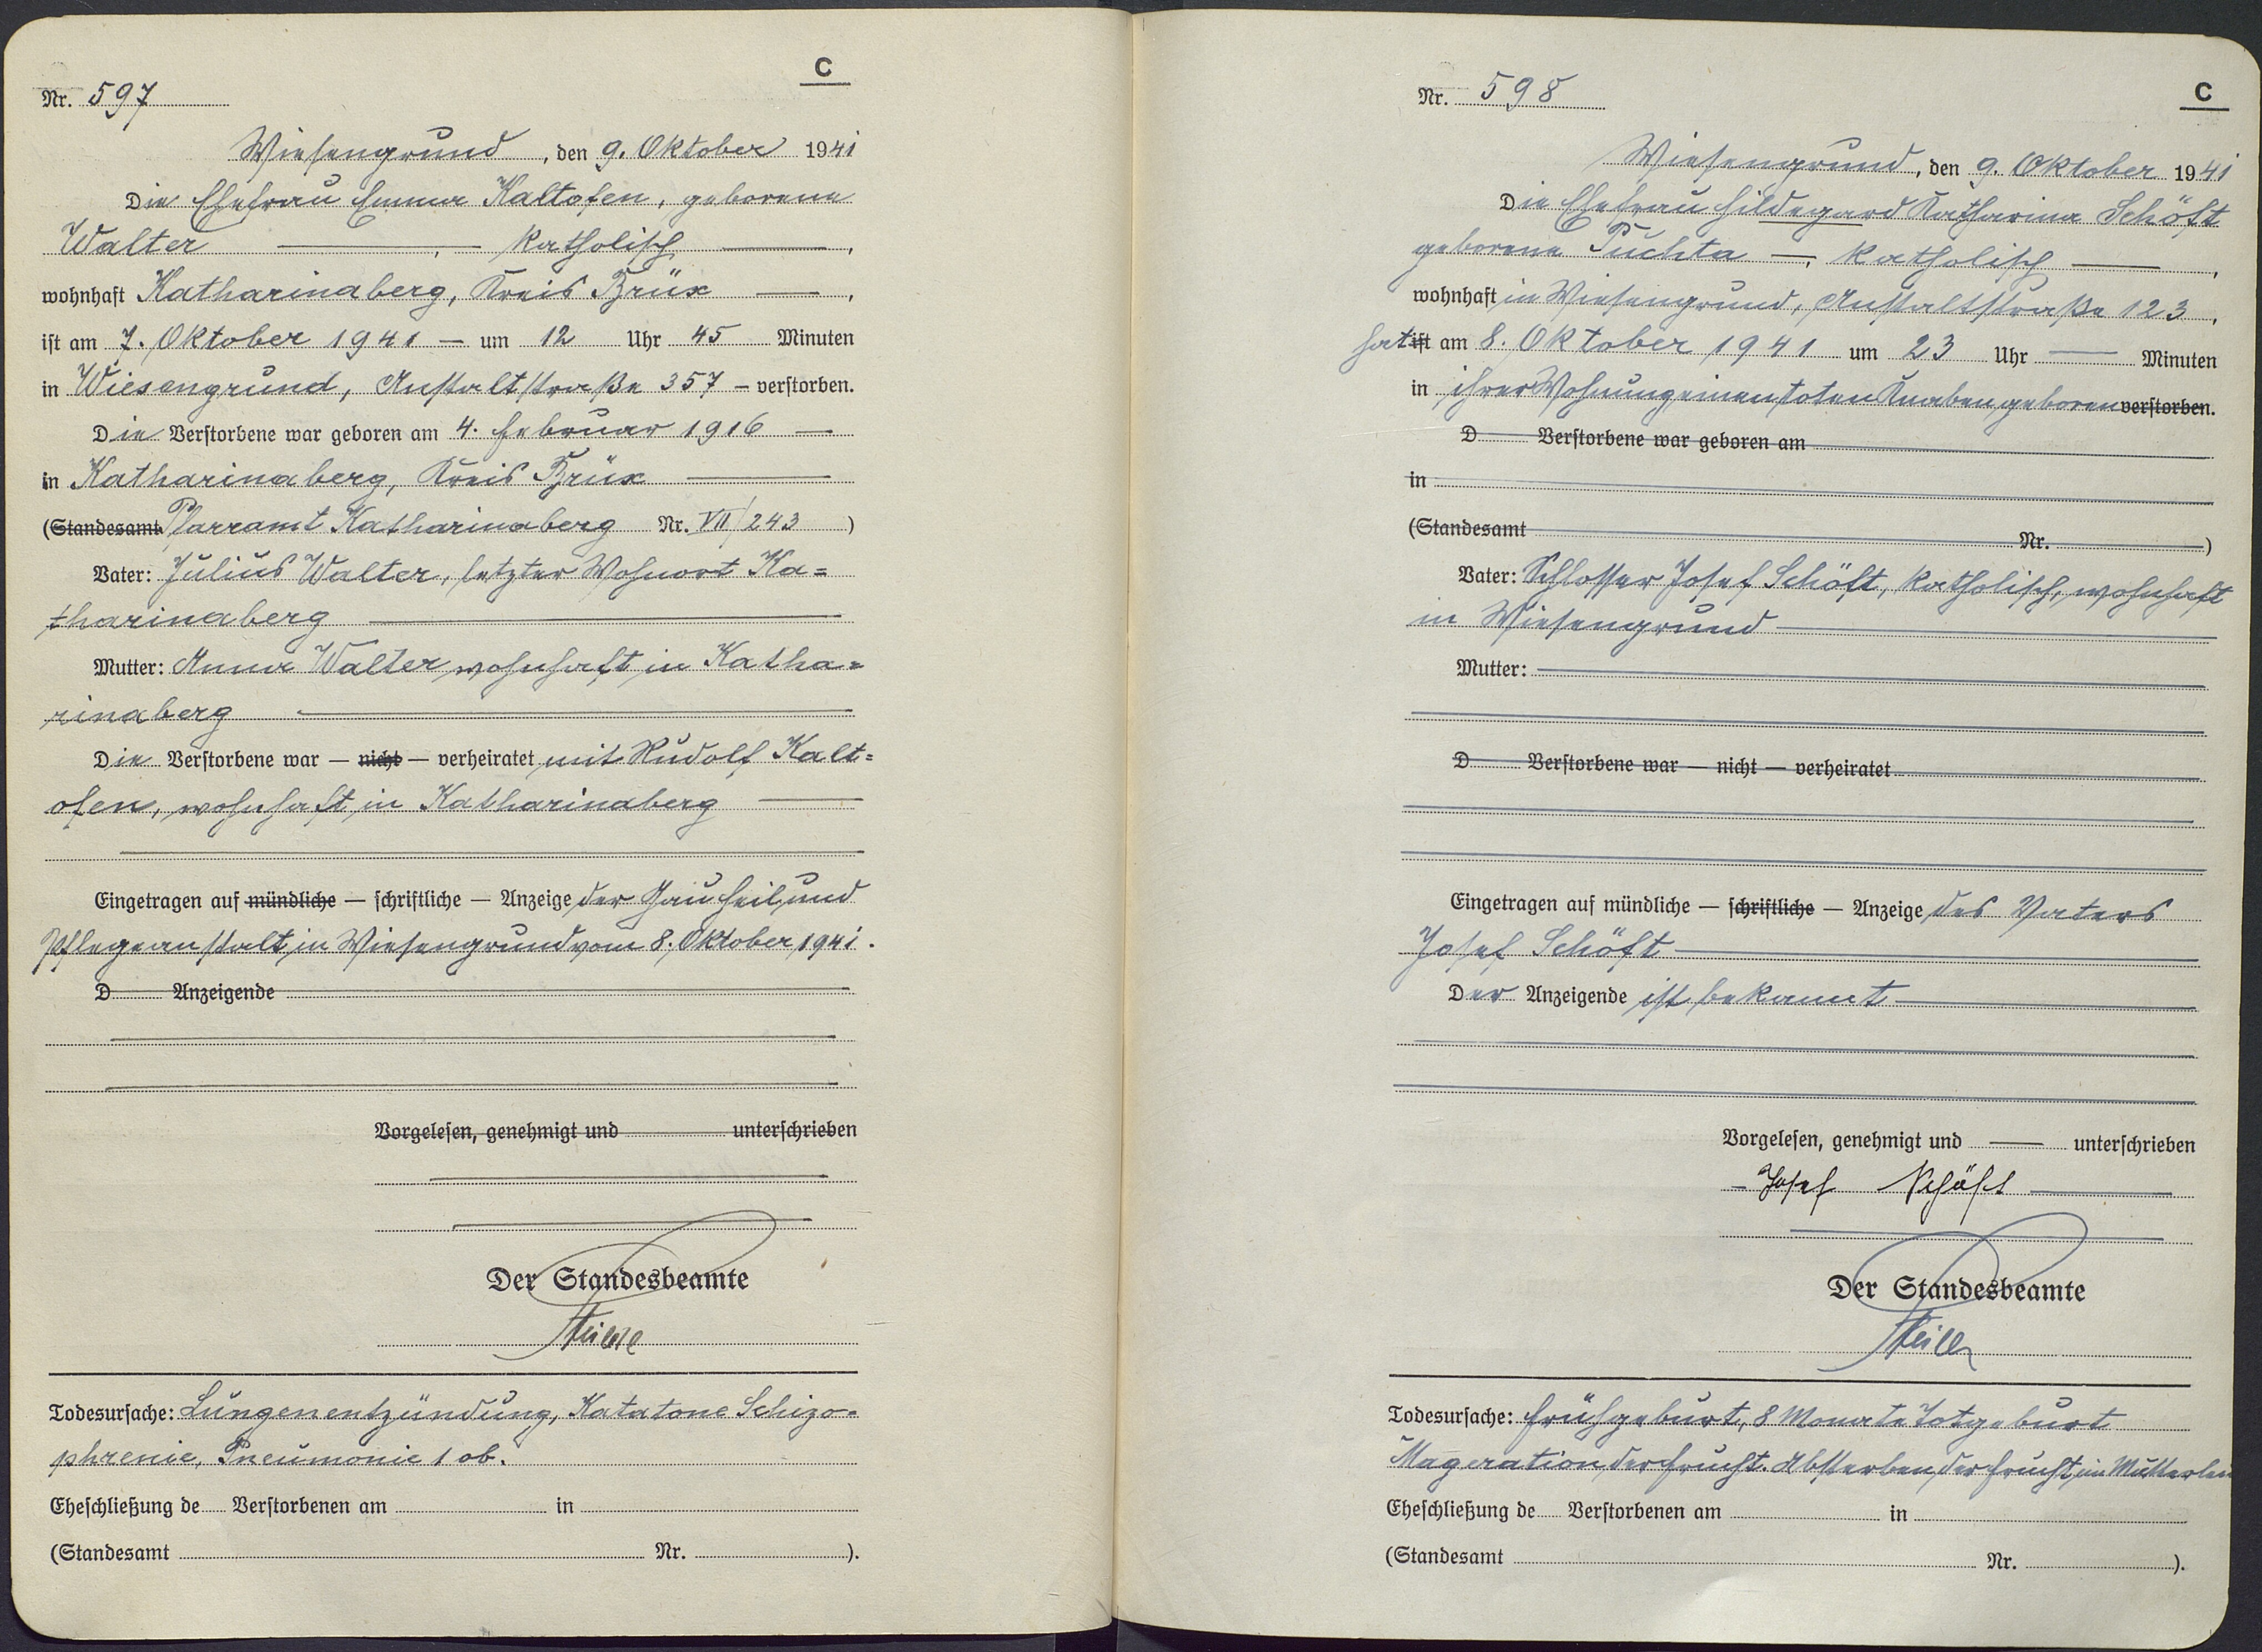 C
Nr. 597
Wiesengrund, den 9. Oktober 1941
Die Ehefrau Emma Kaltofen, geborene
Walter —, katholisch —,
wohnhaft Katharinaberg, Kreis Brüx —,
ist am 7. Oktober 1941 — um 12 Uhr 45 Minuten
in Wiesengrund, Anstaltstraße 357 — verstorben.
Die Verstorbene war geboren am 4. Februar 1916 —
in Katharinaberg, Kreis Brüx —
(Standesamt Pfarramt Katharinaberg Nr. VII/243)
Vater: Julius Walter, letzter Wohnort Ka=
tharinaberg —
Mutter: Anna Walter wohnhaft in Katha=
rinaberg —
Die Verstorbene war — nicht — verheiratet mit Rudolf Kalt=
ofen, wohnhaft in Katharinaberg —
Eingetragen auf mündliche — schriftliche — Anzeige der Gau Heil und
Pflegeanstalt in Wiesengrund vom 8. Oktober 1941.
D Anzeigende
Vorgelesen, genehmigt und unterschrieben
Der Standesbeamte
Todesursache: Lungenentzündung, Katatone Schizo-
phrenie, Pneumonie l ob.
Eheschließung de Verstorbenen am in
(Standesamt Nr. ).
C
Nr. 598
Wiesengrund, den 9. Oktober 1941
Die Ehefrau Hildegard Katharina Schöft
geborene Puchta —, katholisch —,
wohnhaft in Wiesengrund, Anstaltstraße 123,
hat ist am 8. Oktober 1941 um 23 Uhr — Minuten
in ihrer Wohnung einen toten Knaben geboren verstorben.
D Verstorbene war geboren am
in
(Standesamt Nr. )
Vater: Schlosser Josef Schöft, katholisch, wohnhaft
in Wiesengrund —
Mutter:
D Verstorbene war — nicht — verheiratet
Eingetragen auf mündliche — schriftliche — Anzeige des Vaters
Josef Schöft —
Der Anzeigende ist bekannt —
Vorgelesen, genehmigt und — unterschrieben
— Josef Schöft —
Der Standesbeamte
Todesursache: Frühgeburt, 8 Monate Totgeburt
Mazeration der Frucht. Absterben der Frucht im
Eheschließung de Verstorbenen am in
(Standesamt Nr. ).